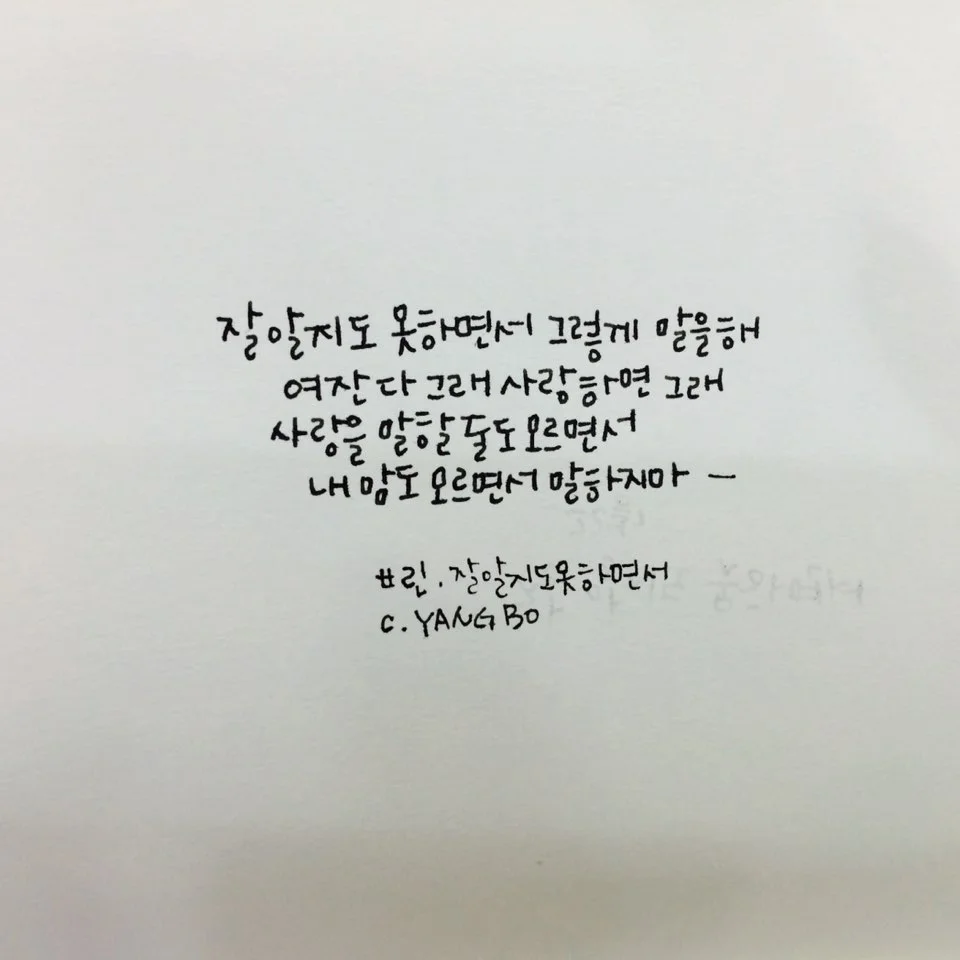 잘알지도 못하면서 그렇게 말을해
여잔 다 그래 사랑하면 그래
사랑을 말할 줄도 모르면서
내 맘도 모르면서 말하지마 ㅡ
#린.잘알지도못하면서
c.YANGBO